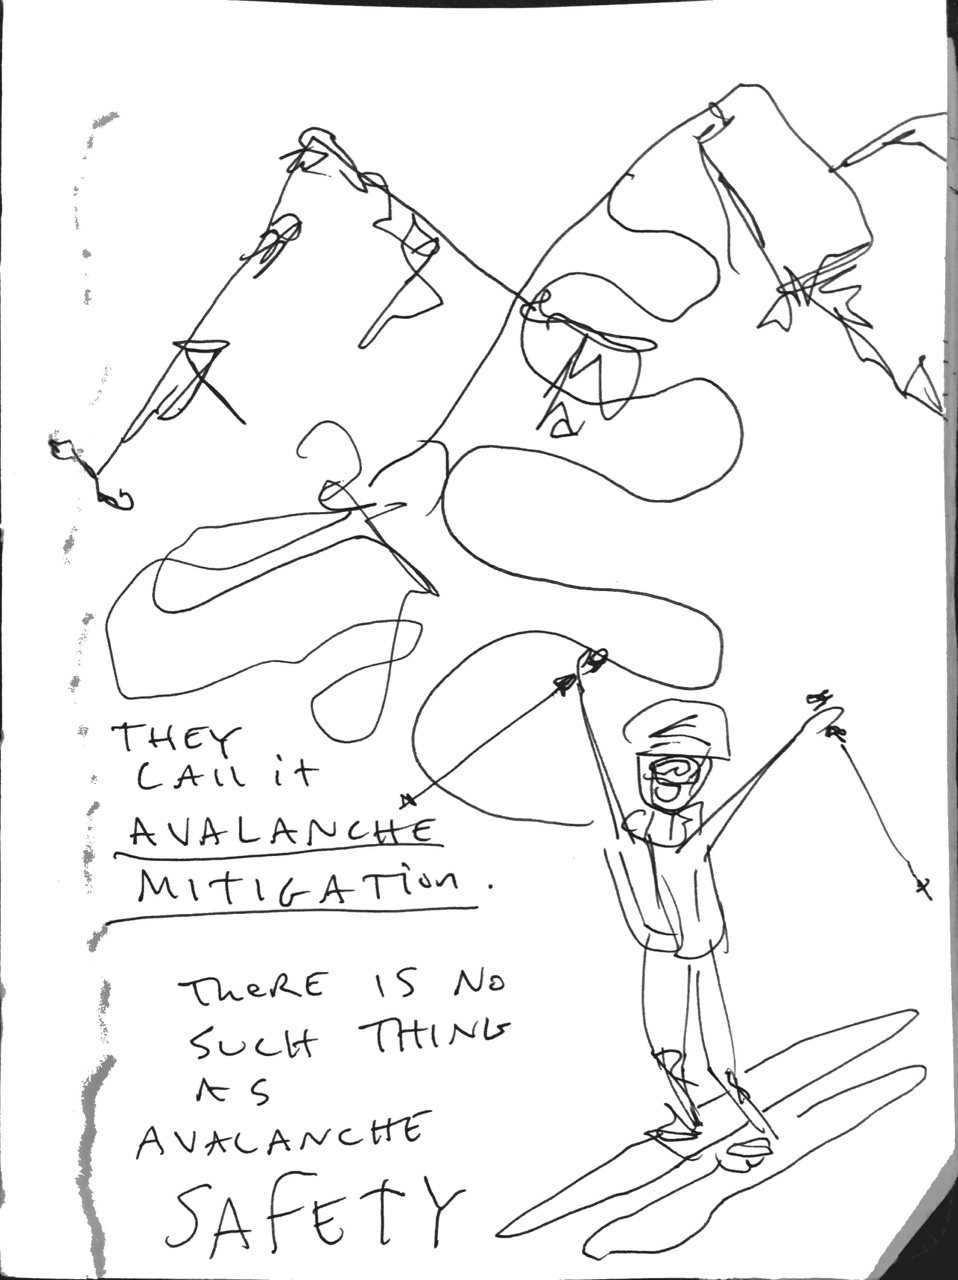 THEY
CALL it
AVALANCHE
MITIGATion.
THeRE IS NO
SUCH THING
AS
AVALANCHE
SAFETY